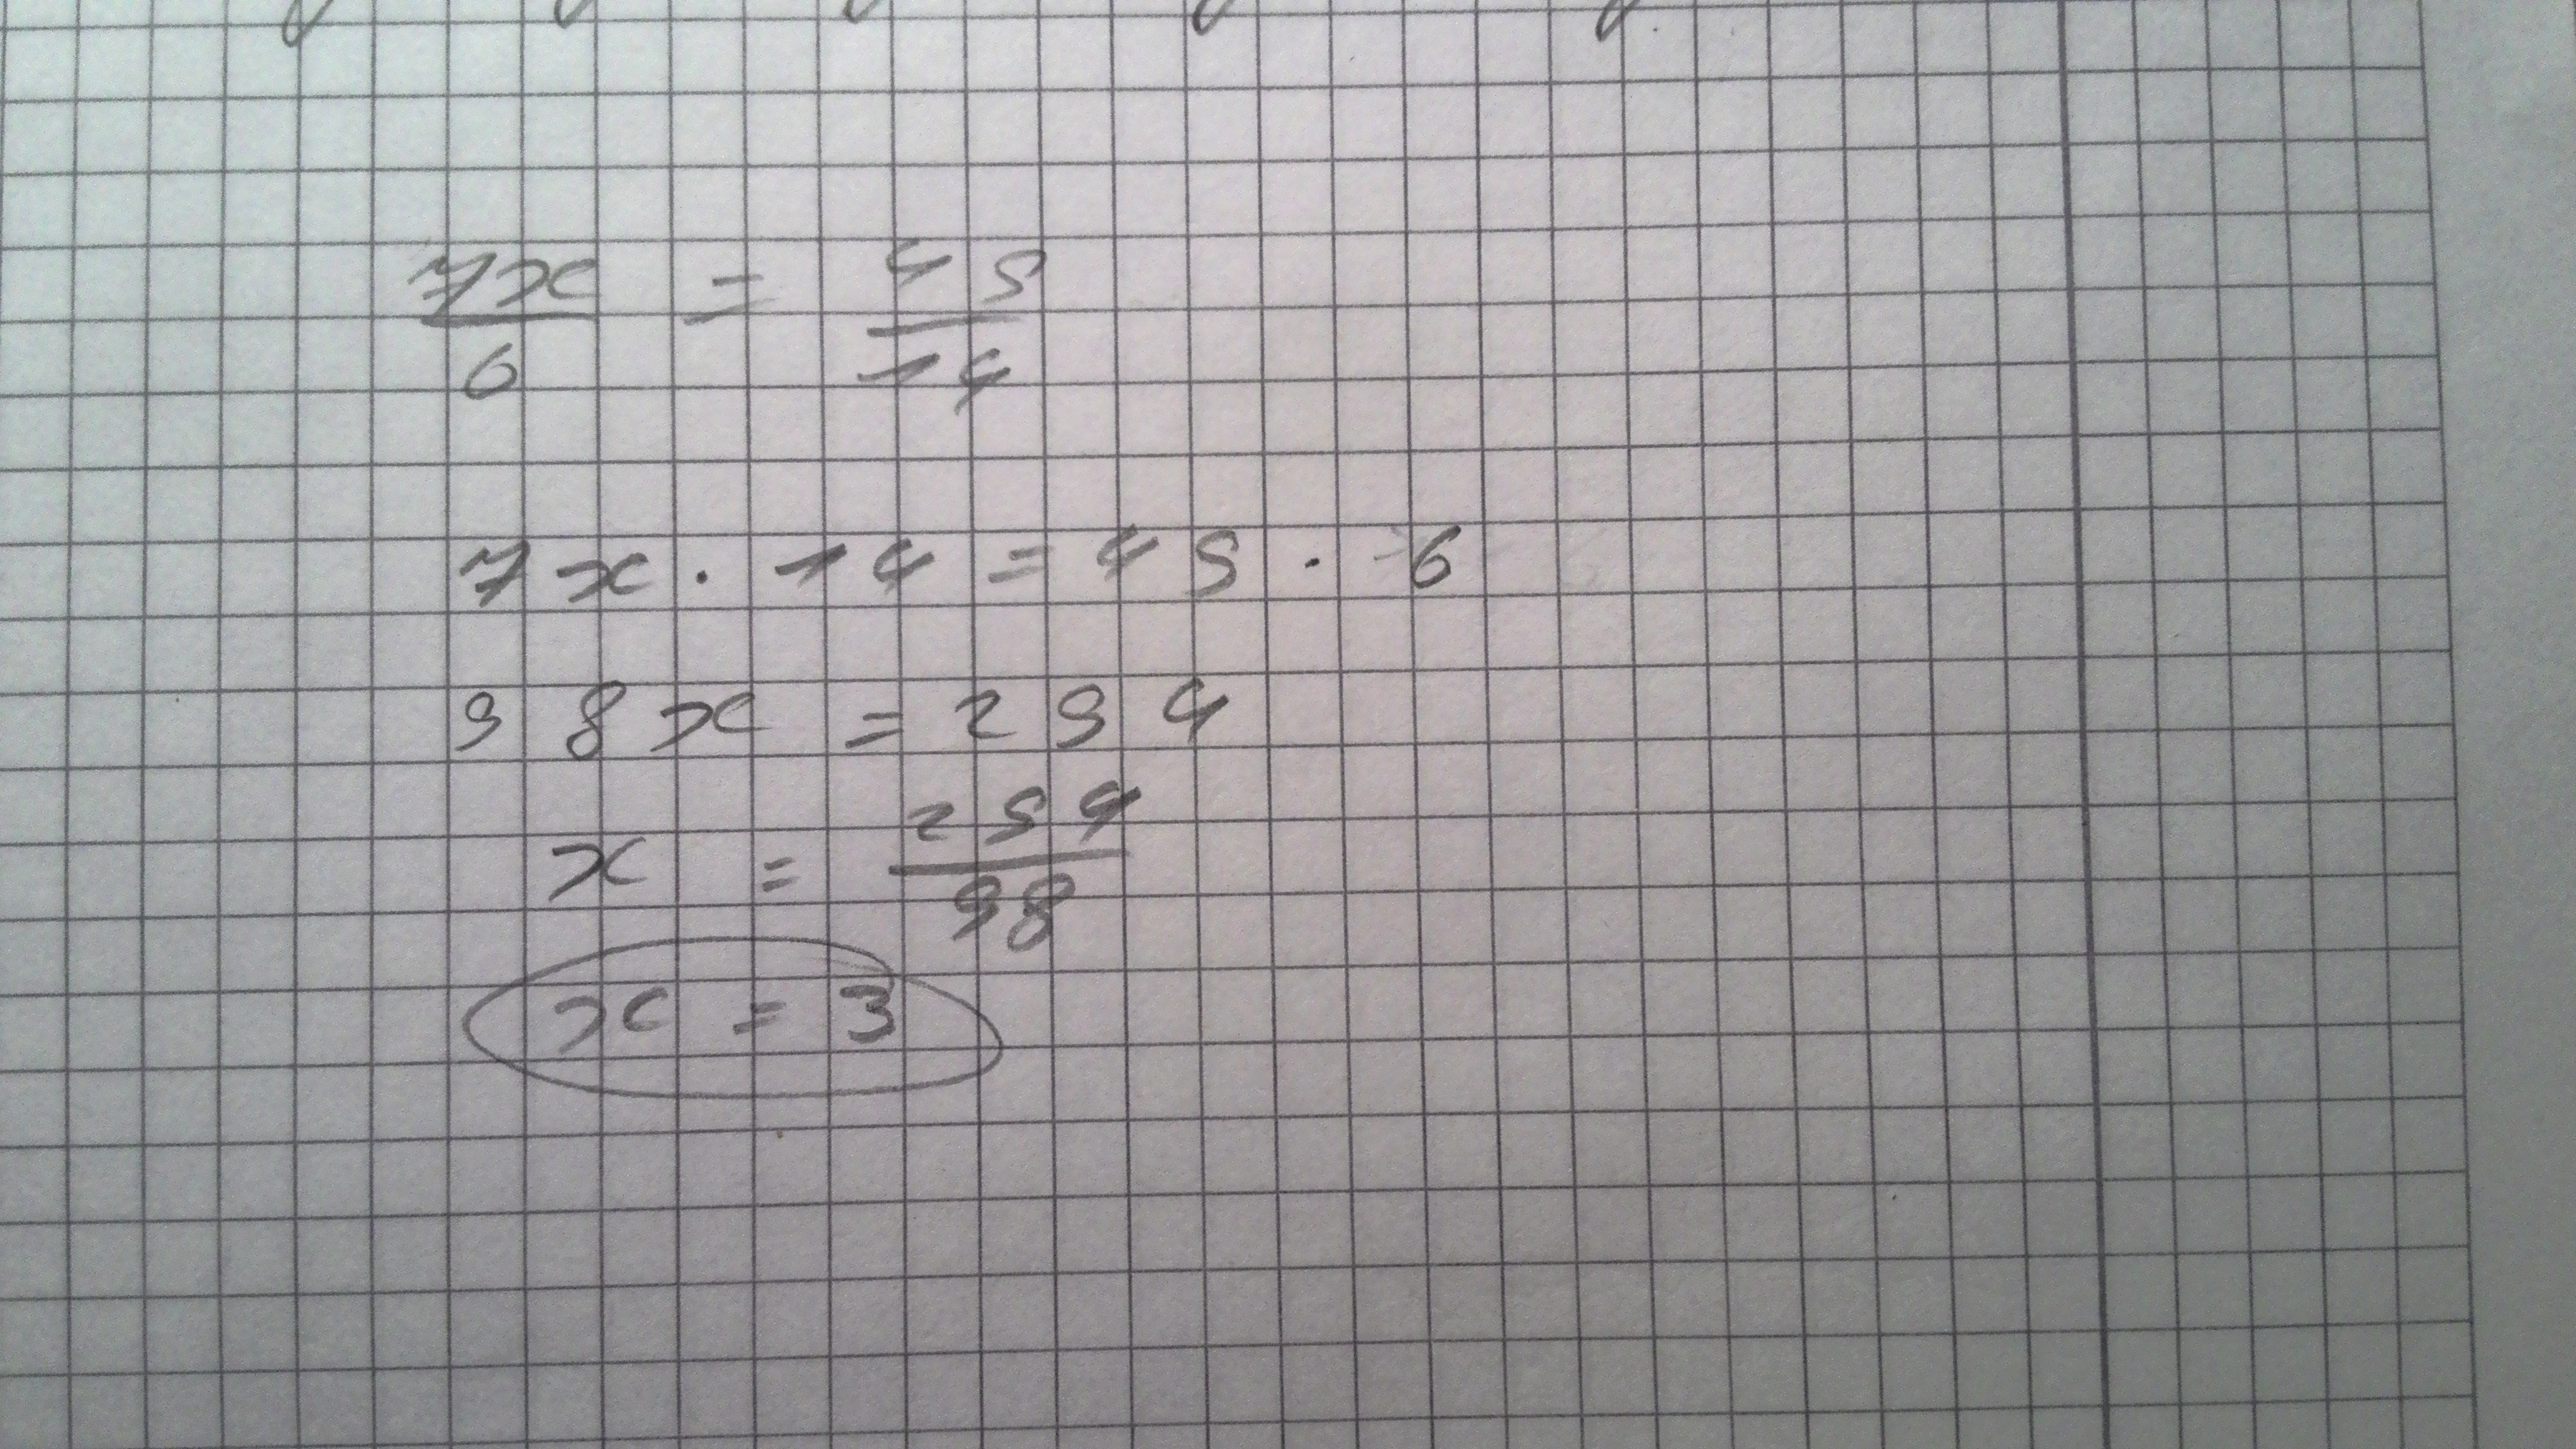 7x/6 = 49/14
7x · 14 = 49 · 6
98x = 294
x = 294/98
x = 3